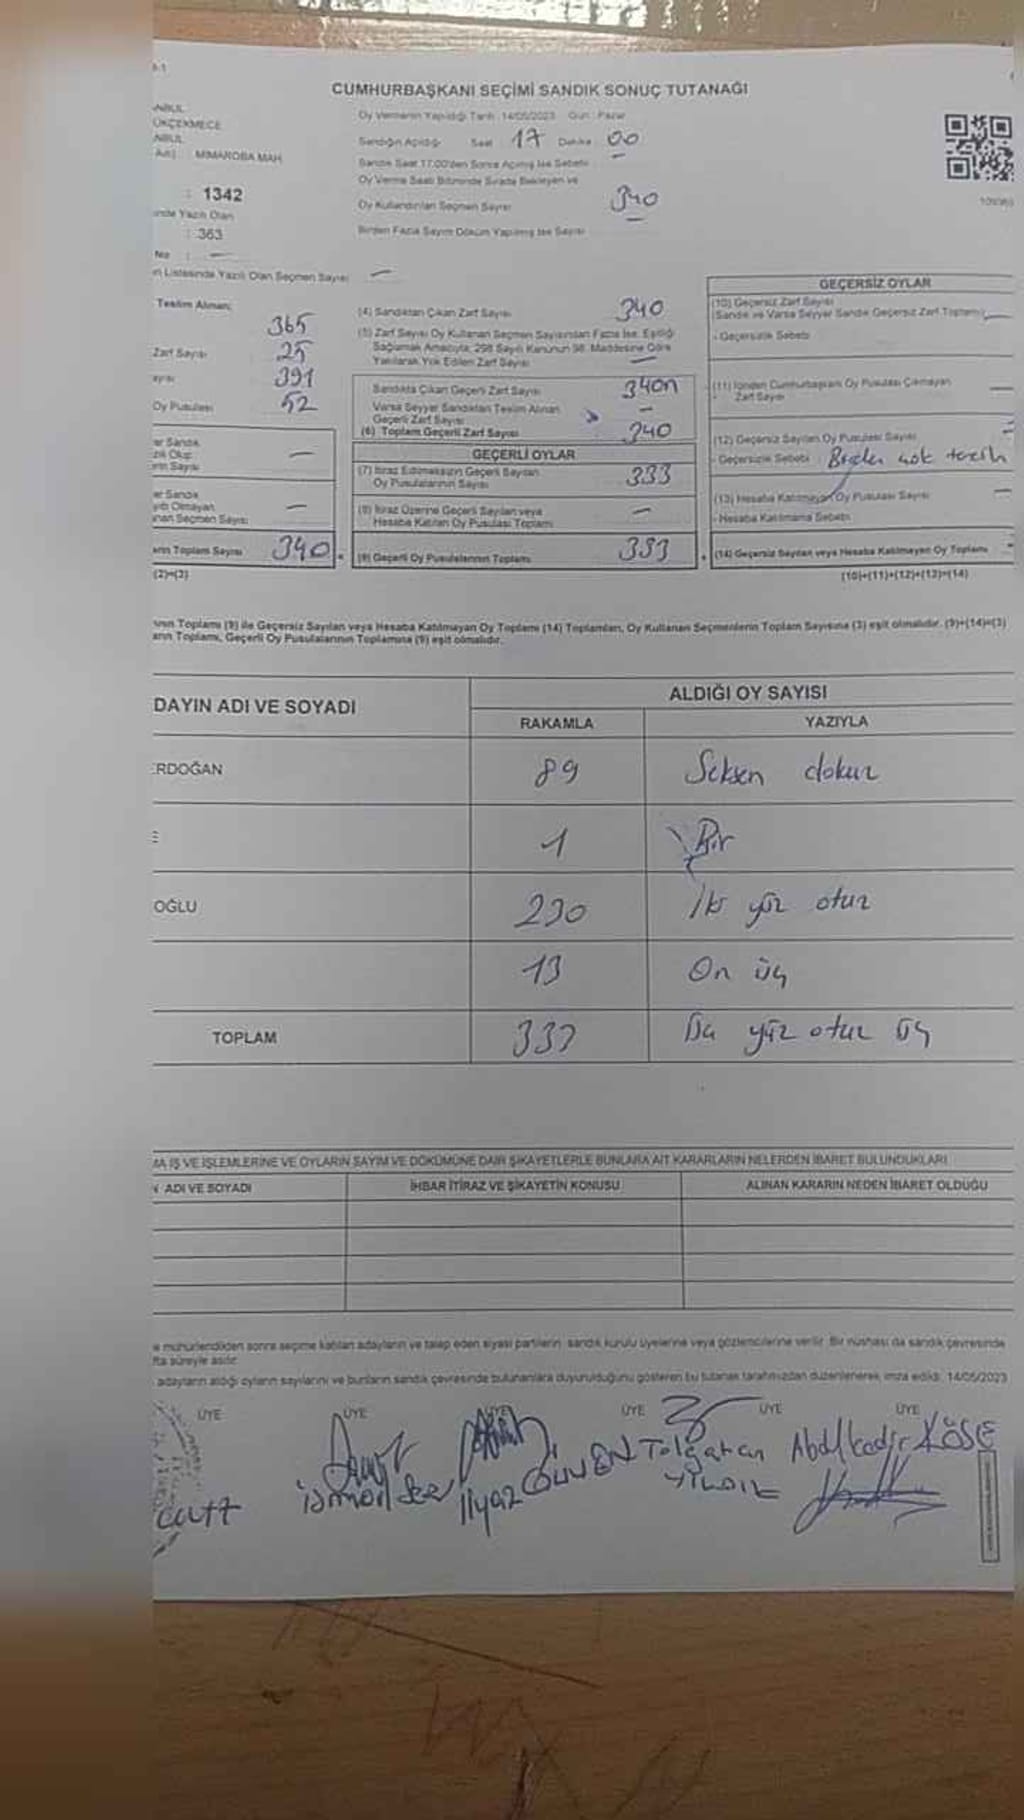 CUMHURBAŞKANI SEÇİMİ SANDIK SONUÇ TUTANAĞI
NBUL
ÜKÇEKMECE
NBUL
Adı) MİMAROBA MAH
: 1342
ınde Yazılı Olan
: 363
No : —
Oy Vermenin Yapıldığı Tarih : 14/05/2023 Gün : Pazar
Sandığın Açıldığı Saat 17 Dakika 00
Sandık Saat 17:00'den Sonra Açılmış İse Sebebi
Oy Verme Saati Bitiminde Sırada Bekleyen ve
Oy Kullandırılan Seçmen Sayısı 340
Birden Fazla Sayım Döküm Yapılmış İse Sayısı
n Listesinde Yazılı Olan Seçmen Sayısı —
Teslim Alınan;
365
Zarf Sayısı 25
ayısı 391
Oy Pusulası 52
er Sandık
zılı Olup
erin Sayısı —
er Sandık
yıtlı Olmayan
anan Seçmen Sayısı —
erin Toplam Sayısı 340
(2)=(3)
(4) Sandıktan Çıkan Zarf Sayısı 340
(5) Zarf Sayısı Oy Kullanan Seçmen Sayısından Fazla İse, Eşitliği
Sağlamak Amacıyla, 298 Sayılı Kanunun 98. Maddesine Göre
Yakılarak Yok Edilen Zarf Sayısı —
Sandıkta Çıkan Geçerli Zarf Sayısı 340
Varsa Seyyar Sandıktan Teslim Alınan
Geçerli Zarf Sayısı —
(6) Toplam Geçerli Zarf Sayısı 340
GEÇERLİ OYLAR
(7) İtiraz Edilmeksizin Geçerli Sayılan
Oy Pusulalarının Sayısı 333
(8) İtiraz Üzerine Geçerli Sayılan veya
Hesaba Katılan Oy Pusulası Toplamı —
(9) Geçerli Oy Pusulalarının Toplamı 333
GEÇERSİZ OYLAR
(10) Geçersiz Zarf Sayısı
(Sandık ve Varsa Seyyar Sandık Geçersiz Zarf Toplamı) —
- Geçersizlik Sebebi
(11) İçinden Cumhurbaşkanı Oy Pusulası Çıkmayan
Zarf Sayısı —
(12) Geçersiz Sayılan Oy Pusulası Sayısı
- Geçersizlik Sebebi Birden çok tercih
(13) Hesaba Katılmayan Oy Pusulası Sayısı —
- Hesaba Katılmama Sebebi
(14) Geçersiz Sayılan veya Hesaba Katılmayan Oy Toplamı
(10)+(11)+(12)+(13)=(14)
ının Toplamı (9) ile Geçersiz Sayılan veya Hesaba Katılmayan Oy Toplamı (14) Toplamları, Oy Kullanan Seçmenlerin Toplam Sayısına (3) eşit olmalıdır. (9)+(14)=(3)
arın Toplamı, Geçerli Oy Pusulalarının Toplamına (9) eşit olmalıdır.
DAYIN ADI VE SOYADI
ALDIĞI OY SAYISI
RAKAMLA YAZIYLA
ERDOĞAN 89 Seksen dokuz
E 1 Bir
OĞLU 230 İki yüz otuz
13 On üç
TOPLAM 333 Üç yüz otuz üç
MA İŞ VE İŞLEMLERİNE VE OYLARIN SAYIM VE DÖKÜMÜNE DAİR ŞİKAYETLERLE BUNLARA AİT KARARLARIN NELERDEN İBARET BULUNDUKLARI
N ADI VE SOYADI İHBAR İTİRAZ VE ŞİKAYETİN KONUSU ALINAN KARARIN NEDEN İBARET OLDUĞU
e mühürlendikten sonra seçime katılan adayların ve talep eden siyasi partilerin sandık kurulu üyelerine veya gözlemcilerine verilir. Bir nüshası da sandık çevresinde
fta süreyle asılır.
adayların aldığı oyların sayılarını ve bunların sandık çevresinde bulunanlara duyurulduğunu gösteren bu tutanak tarafımızdan düzenlenerek imza edildi. 14/05/2023
ÜYE ÜYE ÜYE ÜYE ÜYE ÜYE
İlyaz GÜVEN
Tolgahan YILDIZ
Abdulkadir KÖSE